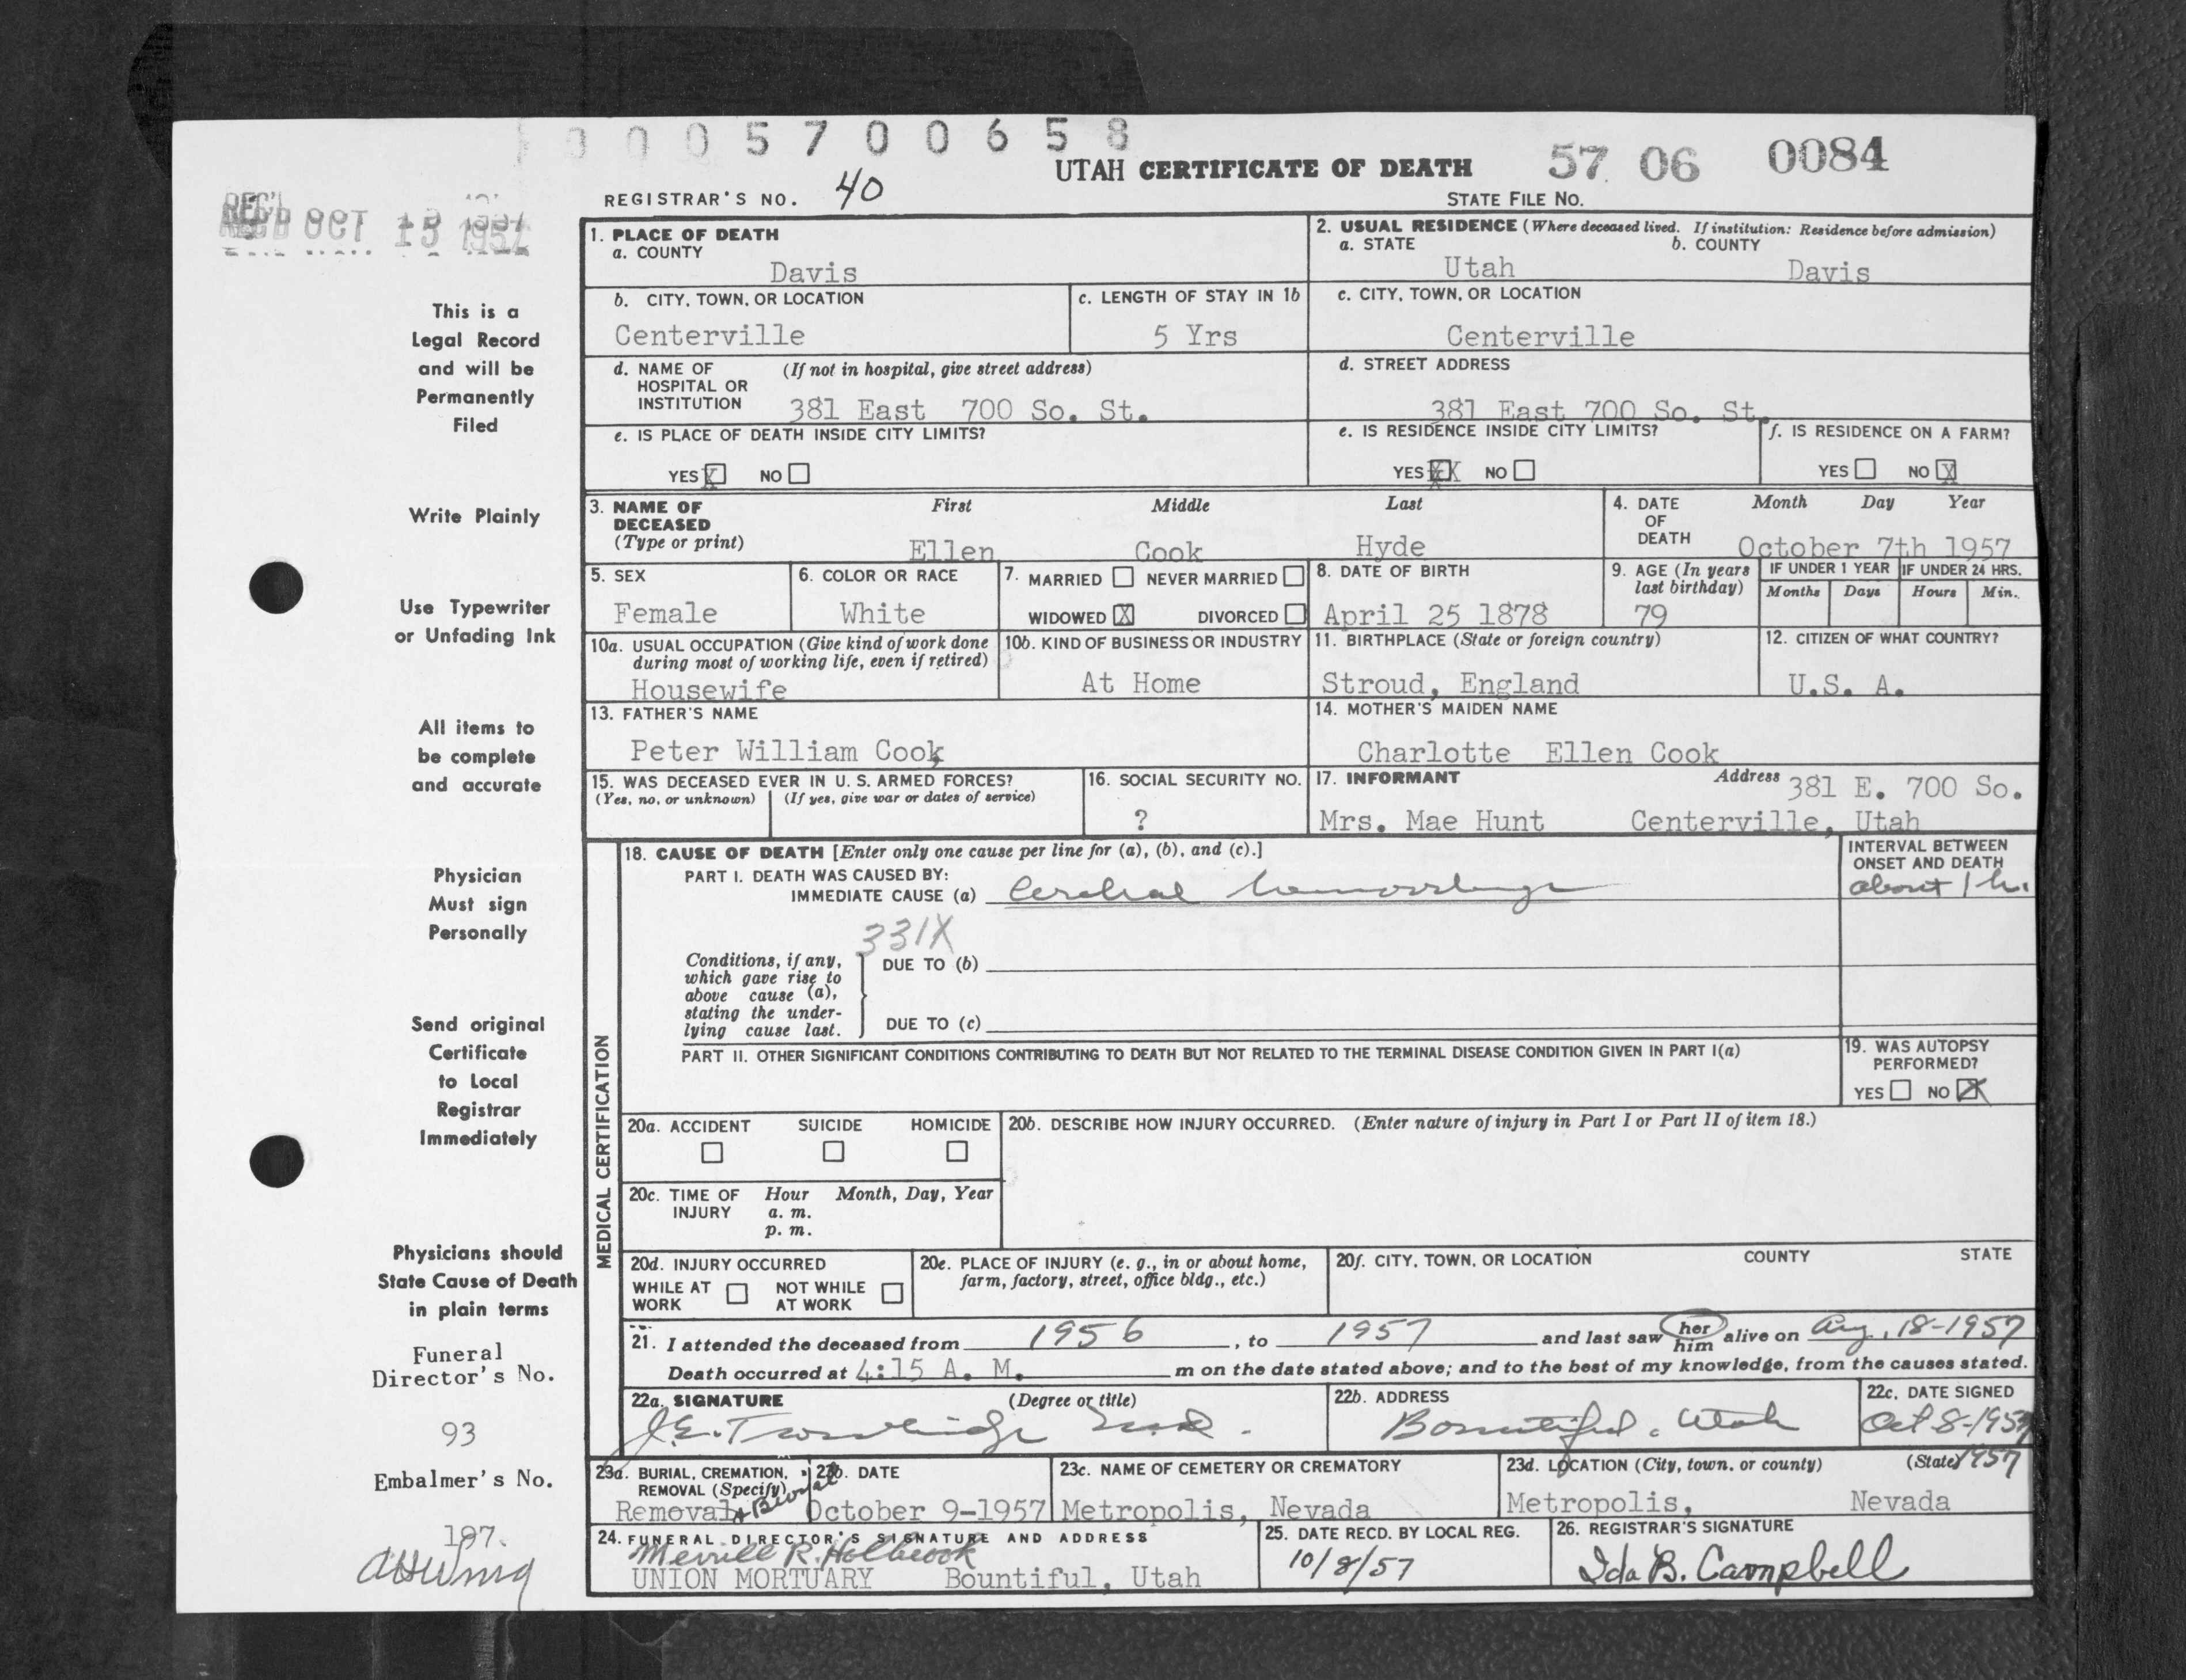 0005700658
UTAH CERTIFICATE OF DEATH
57 06 0084
REGISTRAR'S NO. 40
STATE FILE NO.
REC'D OCT 15 1957
This is a
Legal Record
and will be
Permanently
Filed
Write Plainly
Use Typewriter
or Unfading Ink
All items to
be complete
and accurate
Physician
Must sign
Personally
Send original
Certificate
to Local
Registrar
Immediately
Physicians should
State Cause of Death
in plain terms
Funeral
Director's No.
93
Embalmer's No.
197.
1. PLACE OF DEATH
a. COUNTY
Davis
2. USUAL RESIDENCE (Where deceased lived. If institution: Residence before admission)
a. STATE b. COUNTY
Utah Davis
b. CITY, TOWN, OR LOCATION
Centerville
c. LENGTH OF STAY IN 1b
5 Yrs
c. CITY, TOWN, OR LOCATION
Centerville
d. NAME OF (If not in hospital, give street address)
HOSPITAL OR
INSTITUTION 381 East 700 So. St.
d. STREET ADDRESS
381 East 700 So. St.
e. IS PLACE OF DEATH INSIDE CITY LIMITS?
YES X NO
e. IS RESIDENCE INSIDE CITY LIMITS?
YES XX NO
f. IS RESIDENCE ON A FARM?
YES NO X
3. NAME OF First Middle Last
DECEASED
(Type or print) Ellen Cook Hyde
4. DATE Month Day Year
OF
DEATH October 7th 1957
5. SEX
Female
6. COLOR OR RACE
White
7. MARRIED NEVER MARRIED
WIDOWED X DIVORCED
8. DATE OF BIRTH
April 25 1878
9. AGE (In years
last birthday)
79
IF UNDER 1 YEAR IF UNDER 24 HRS.
Months Days Hours Min.
10a. USUAL OCCUPATION (Give kind of work done
during most of working life, even if retired)
Housewife
10b. KIND OF BUSINESS OR INDUSTRY
At Home
11. BIRTHPLACE (State or foreign country)
Stroud, England
12. CITIZEN OF WHAT COUNTRY?
U.S. A.
13. FATHER'S NAME
Peter William Cook
14. MOTHER'S MAIDEN NAME
Charlotte Ellen Cook
15. WAS DECEASED EVER IN U. S. ARMED FORCES?
(Yes, no, or unknown) (If yes, give war or dates of service)
16. SOCIAL SECURITY NO.
?
17. INFORMANT Address 381 E. 700 So.
Mrs. Mae Hunt Centerville, Utah
MEDICAL CERTIFICATION
18. CAUSE OF DEATH [Enter only one cause per line for (a), (b), and (c).]
PART I. DEATH WAS CAUSED BY:
IMMEDIATE CAUSE (a) Cerebral hemorrhage
INTERVAL BETWEEN
ONSET AND DEATH
about 1 h.
331X
Conditions, if any,
which gave rise to
above cause (a),
stating the under-
lying cause last.
DUE TO (b)
DUE TO (c)
PART II. OTHER SIGNIFICANT CONDITIONS CONTRIBUTING TO DEATH BUT NOT RELATED TO THE TERMINAL DISEASE CONDITION GIVEN IN PART I(a)
19. WAS AUTOPSY
PERFORMED?
YES NO X
20a. ACCIDENT SUICIDE HOMICIDE
20b. DESCRIBE HOW INJURY OCCURRED. (Enter nature of injury in Part I or Part II of item 18.)
20c. TIME OF Hour Month, Day, Year
INJURY a. m.
p. m.
20d. INJURY OCCURRED
WHILE AT NOT WHILE
WORK AT WORK
20e. PLACE OF INJURY (e. g., in or about home,
farm, factory, street, office bldg., etc.)
20f. CITY, TOWN, OR LOCATION COUNTY STATE
21. I attended the deceased from 1956, to 1957 and last saw her him alive on Aug, 18-1957
Death occurred at 4:15 A. M. m on the date stated above; and to the best of my knowledge, from the causes stated.
22a. SIGNATURE (Degree or title)
J.E. Trowbridge M.D.
22b. ADDRESS
Bountiful, Utah
22c. DATE SIGNED
Oct 8-1957
1957
23a. BURIAL, CREMATION,
REMOVAL (Specify)
Removal & Burial
23b. DATE
October 9-1957
23c. NAME OF CEMETERY OR CREMATORY
Metropolis, Nevada
23d. LOCATION (City, town, or county) (State)
Metropolis, Nevada
24. FUNERAL DIRECTOR'S SIGNATURE AND ADDRESS
Merrill R. Holbrook
UNION MORTUARY Bountiful, Utah
25. DATE RECD. BY LOCAL REG.
10/8/57
26. REGISTRAR'S SIGNATURE
Ida B. Campbell